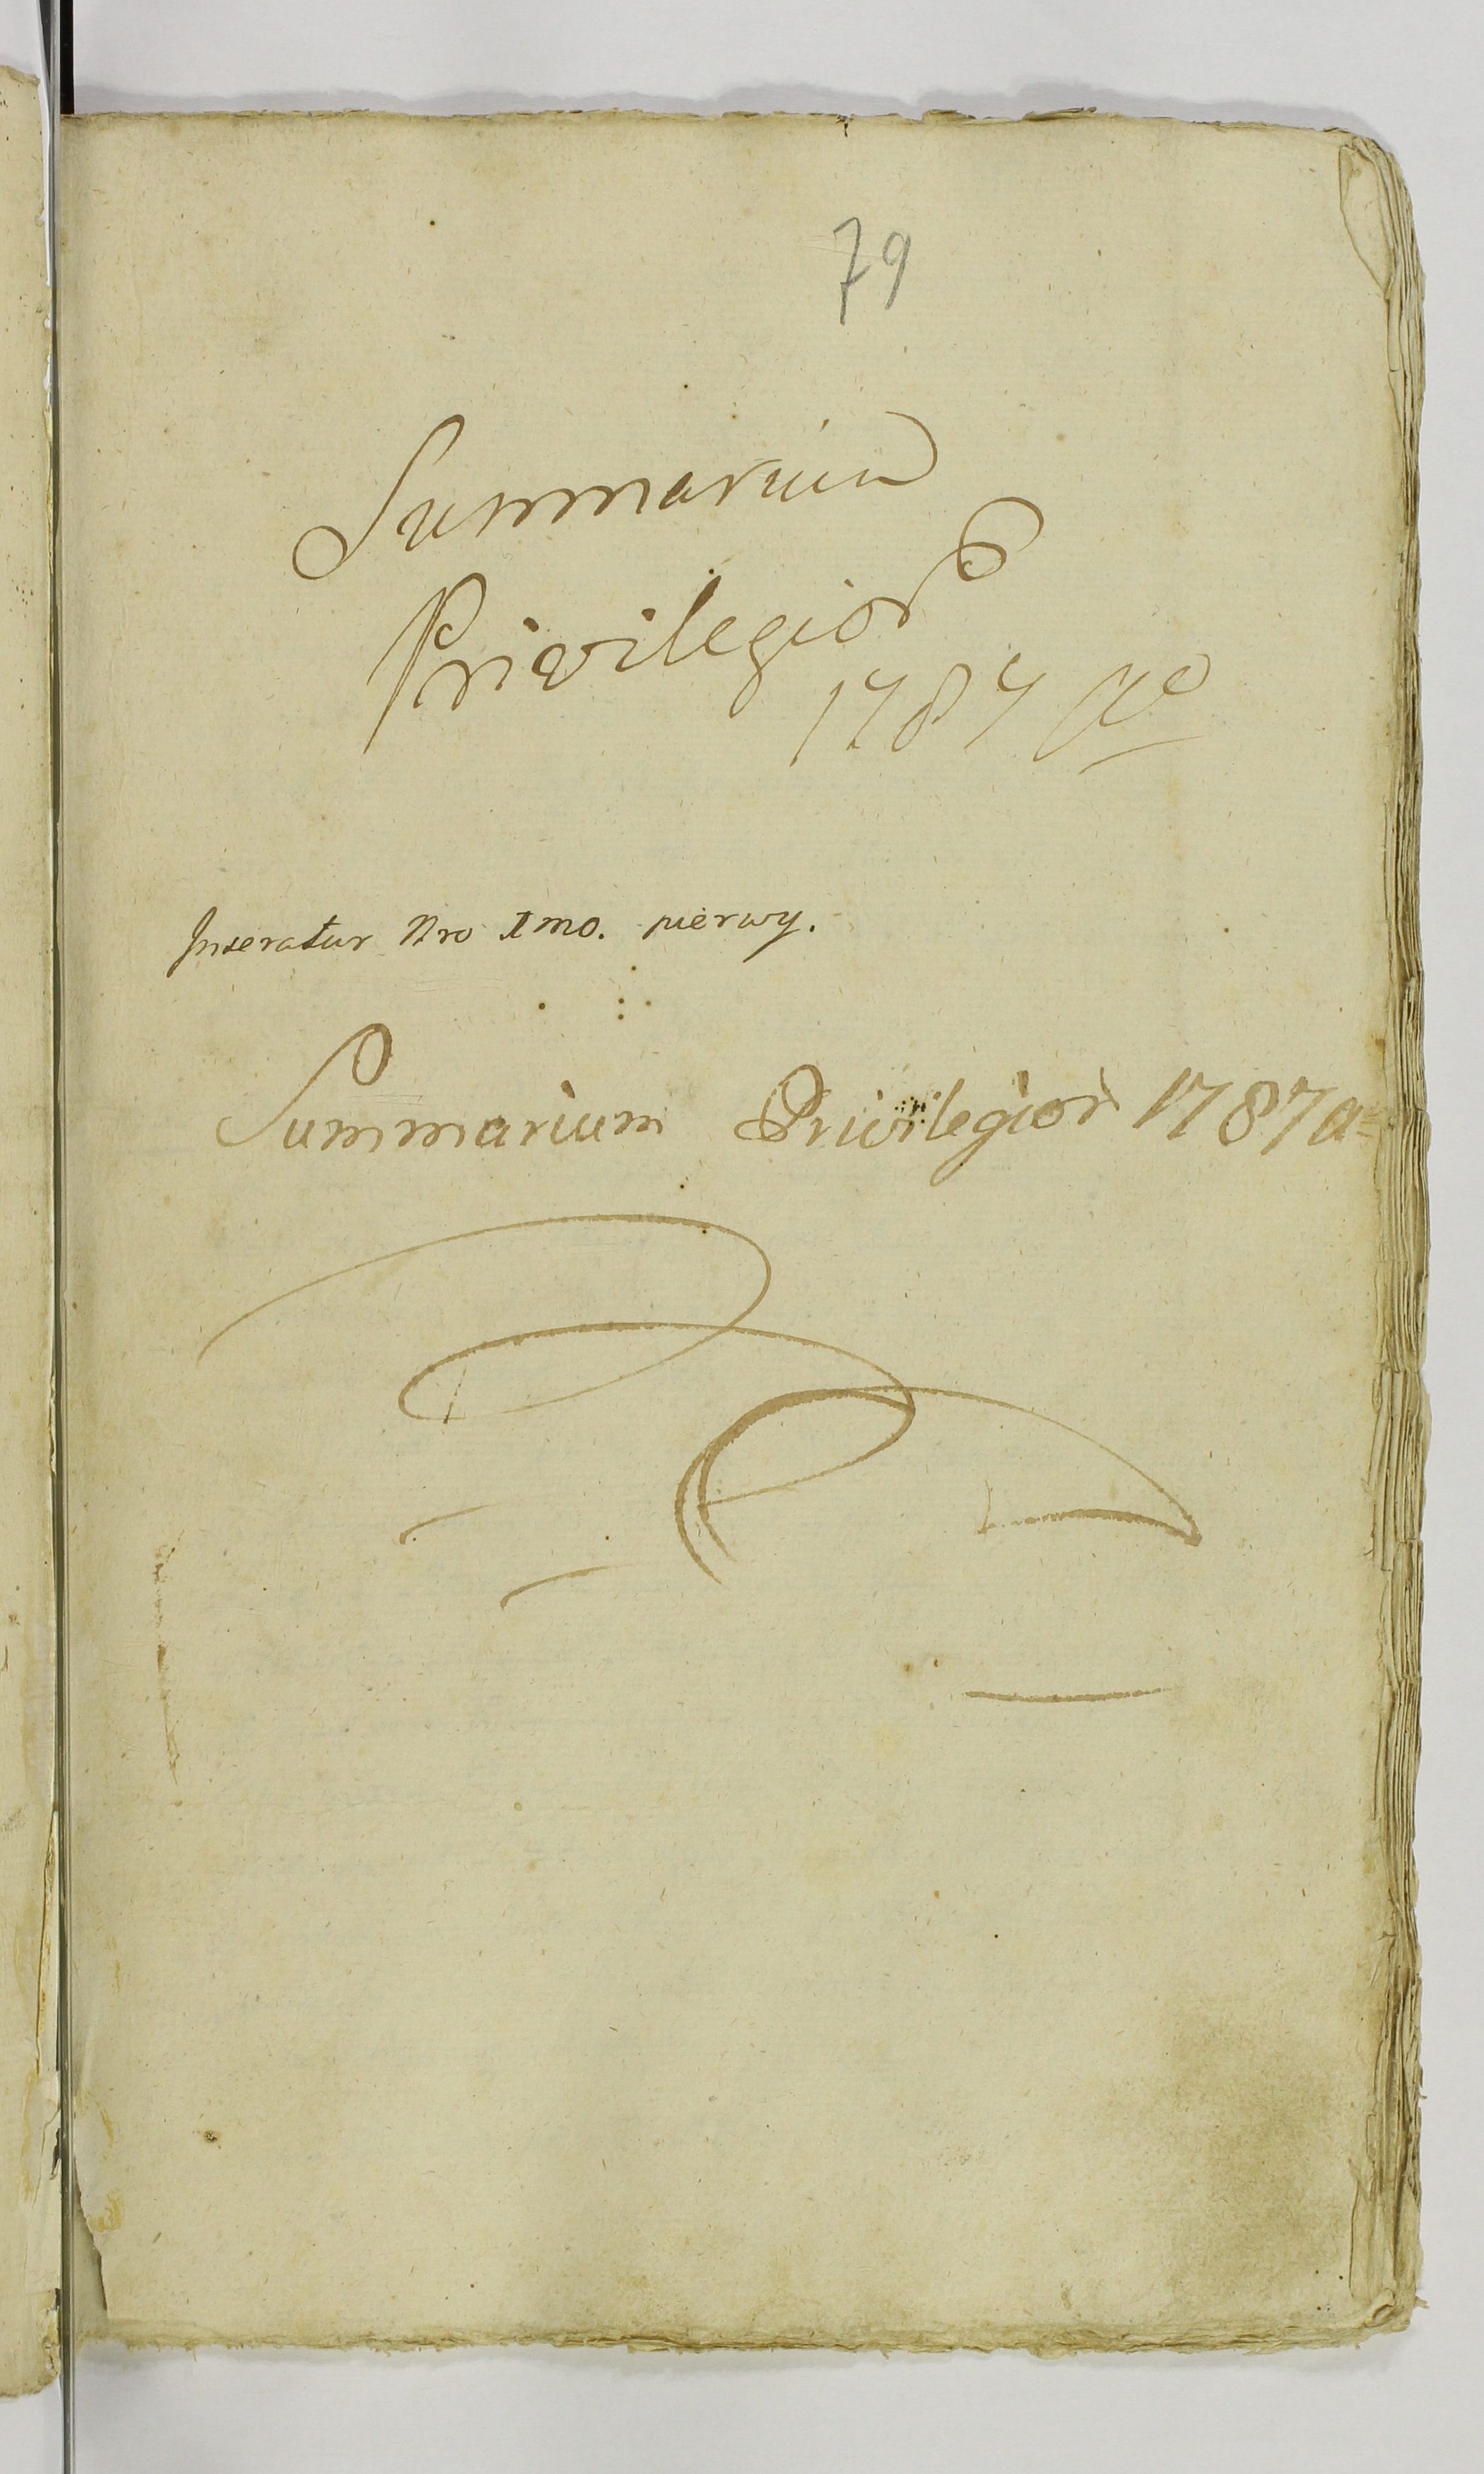 79
Summarium
Privilegior
1787 Ao
Inseratur Nro Imo. pierwy.
Summarium Privilegior 1787 a=